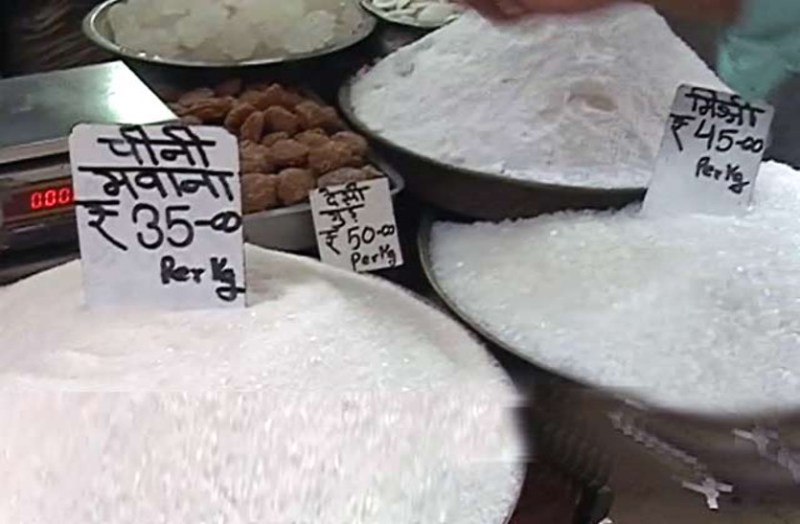 चीनी
मवाना
₹ 35-00
Per Kg
देसी
गुड़
₹ 50-00
Per Kg
मिश्री
₹ 45-00
Per Kg
0.00